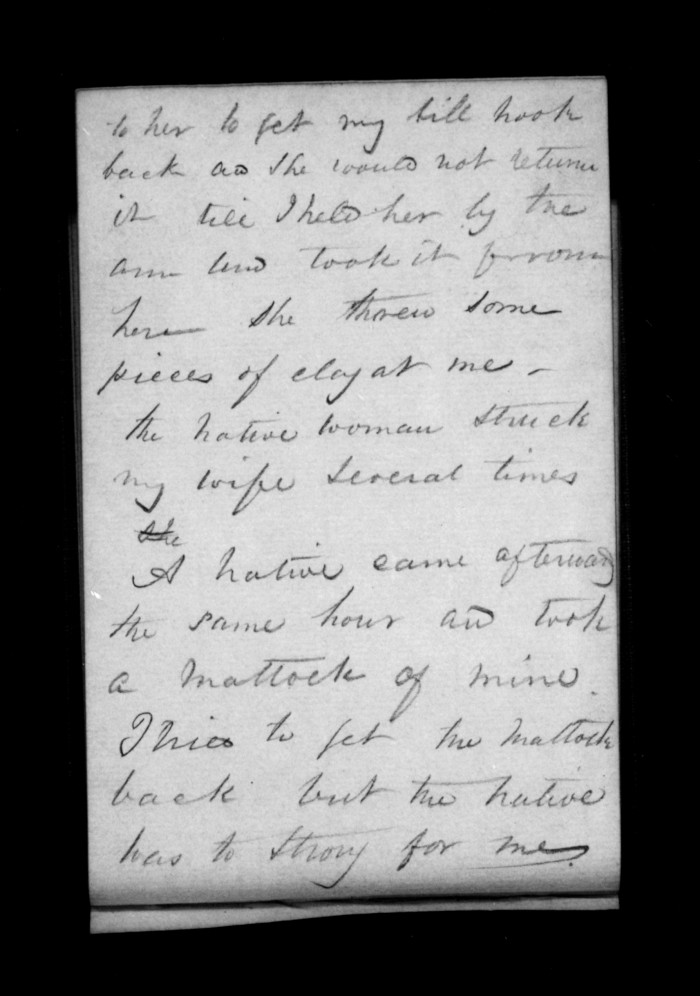 to her to get my bill hook
back as she would not return
it till I held her by the
arm and took it from
her she threw some
pieces of clay at me -
the native woman struck
my wife several times
she
A native came afterward
the same hour and took
a Mattock of mine.
I tried to get the Mattock
back but the native
was to strong for me.